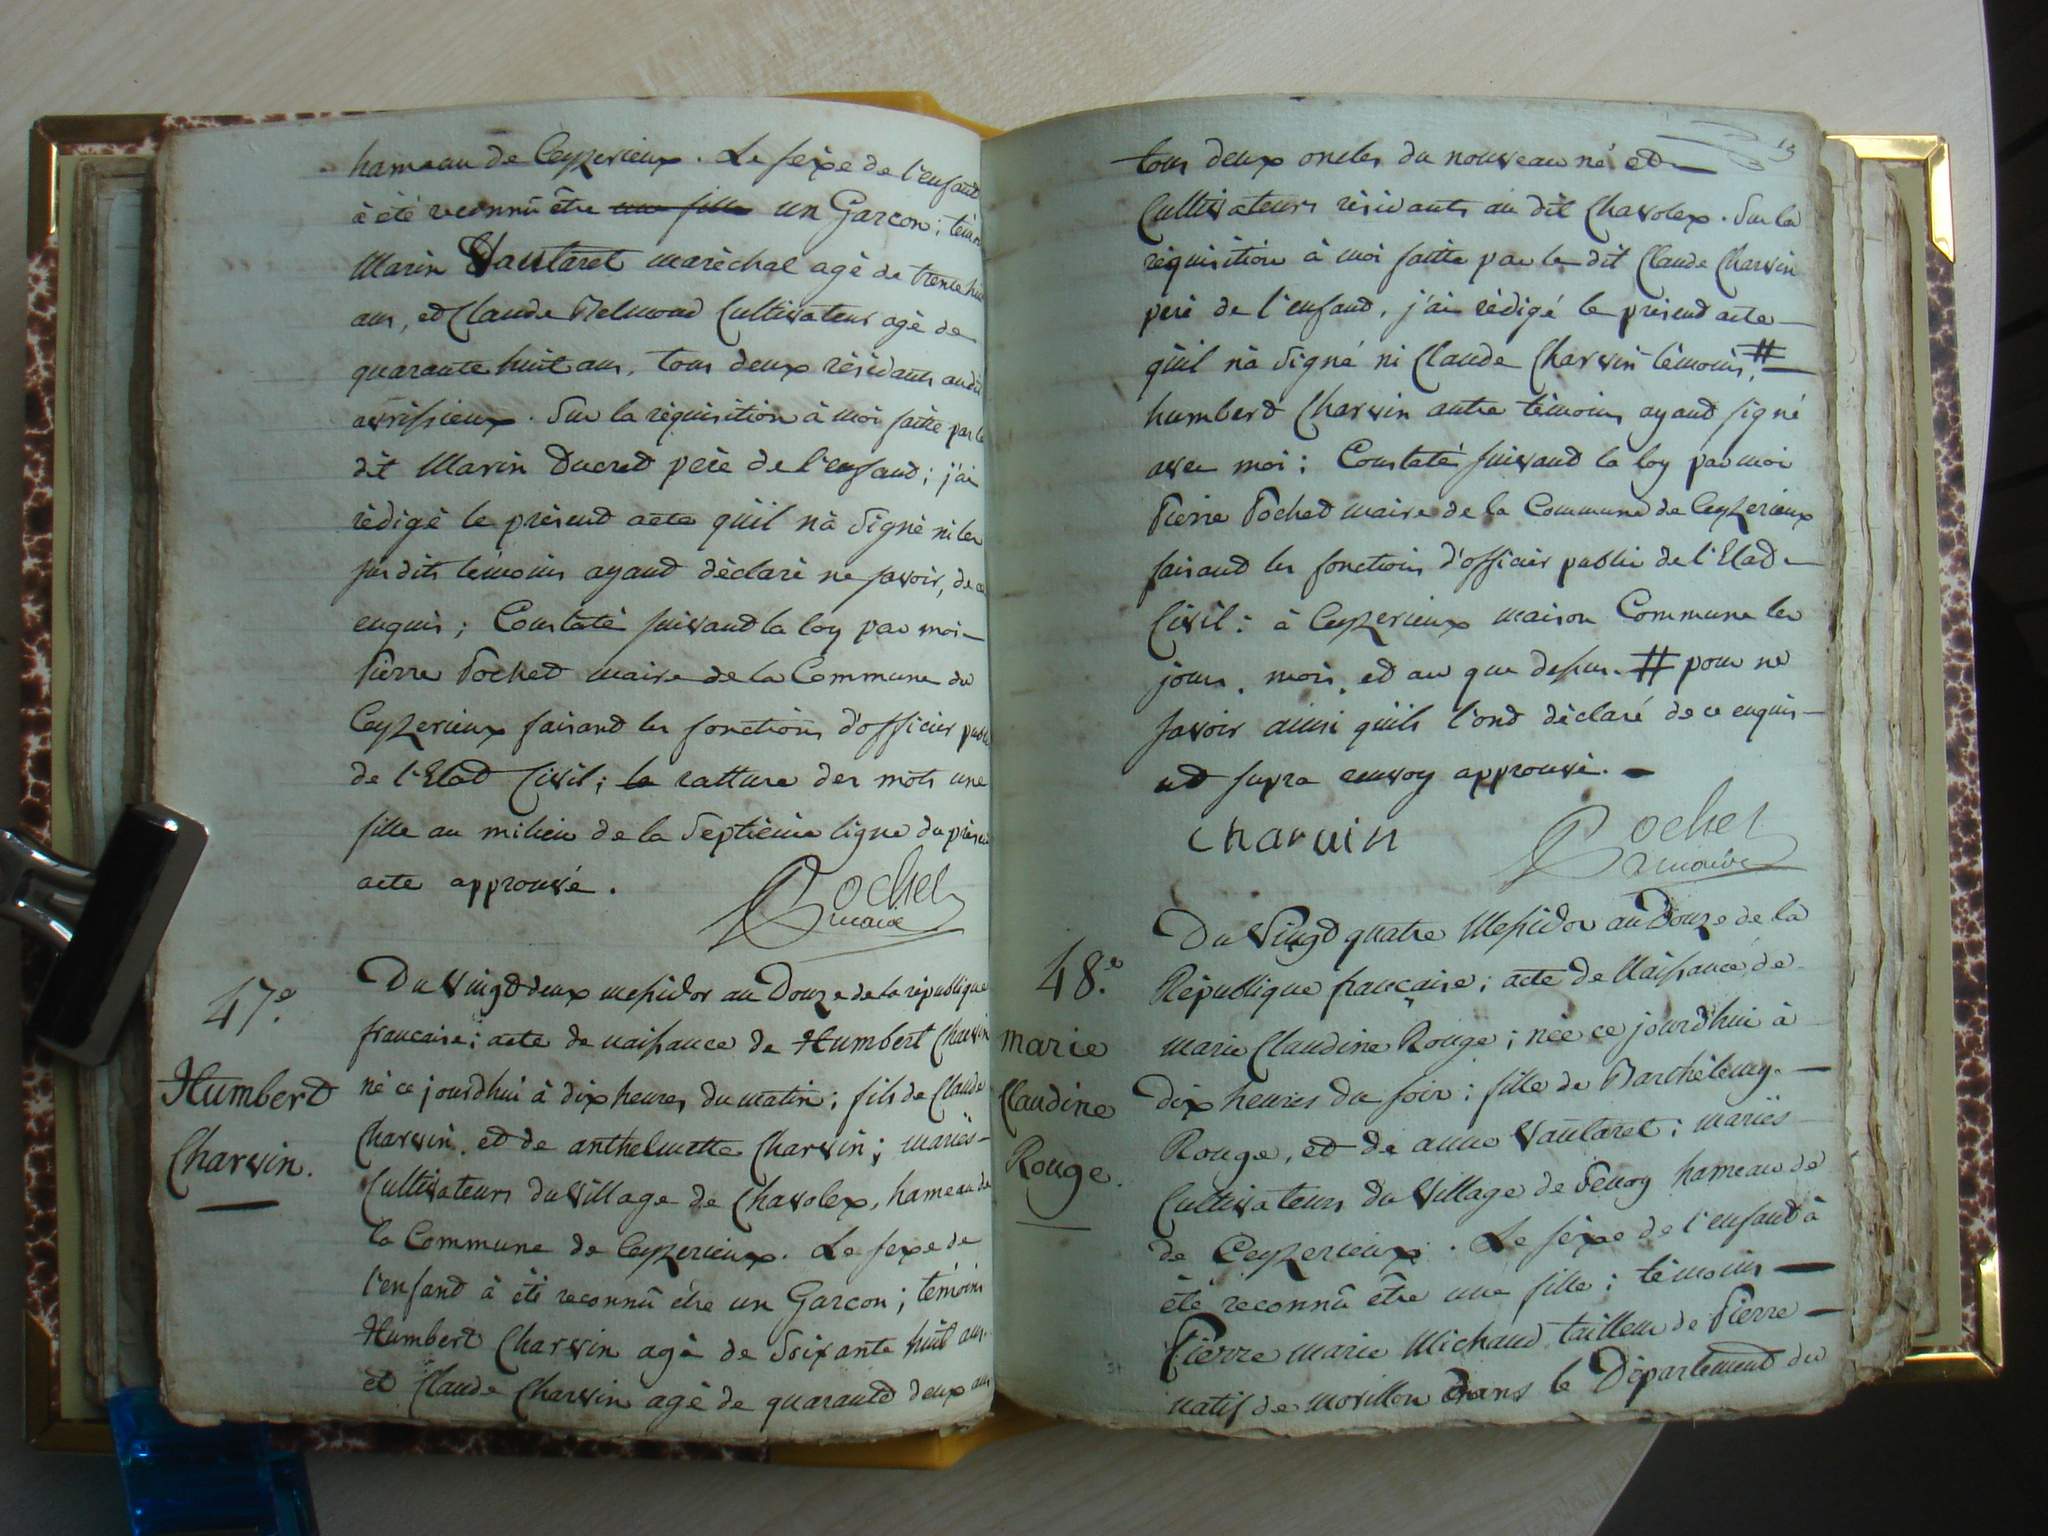 hameau de Ceyzerieux. Le sèxe de l'enfant
à été reconnû être une fille un Garcon; témoins
Marin Vautaret maréchal agé de trente huit
ans, et Claude Belmond Cultivateur agé de
quarante huit ans, tous deux résidants audit
avrissieux. Sur la réquisition à moi faitte par le
dit Marin Ducret pere de l'enfant; j'ai
rédigé le présent acte qu'il n'à Signé ni les
susdits témoins ayant déclaré ne savoir, de ce
enquis; Constaté suivant la loy par moi
Pierre Pochet maire de la Commune de
Ceyzerieux faisant les fonctions d'officier public
de l'Etat Civil; la ratture des mots une
fille au milieu de la Septième ligne du présent
acte approuvé.
Pochet
maire
47.e
Humbert
Charvin.
Du Vingt deux messidor an Douze de la république
francaise; acte de naissance de Humbert Charvin
né ce jourdhui à dix heures du matin; fils de Claude
Charvin, et de anthelmette Charvin; mariés
Cultivateurs du Village de Chavolex, hameau de
la Commune de Ceyzerieux. Le sexe de
l'enfant à été reconnû être un Garcon; témoins
Humbert Charvin agé de Soixante huit ans
et Claude Charvin agé de quarante deux ans
13
tous deux oncles du nouveau né et
Cultivateurs résidants au dit Chavolex. Sur la
réquisition à moi faitte par le dit Claude Charvin
pere de l'enfant, j'ai rédigé le présent acte
qu'il n'à Signé ni Claude Charvin témoins, #
humbert Charvin autre témoins ayant signé
avec moi; Constaté suivant la loy par moi
Pierre Pochet maire de la Commune de Ceyzerieux
faisant les fonctions d'officier public de l'Etat
Civil: à Ceyzerieux maison Commune les
jours, mois, et an que dessus. # pour ne
savoir ainsi qu'ils l'ont déclaré de ce enquis
ut supra renvoy approuvé.
Charvin
Pochet
maire
48.e
marie
Claudine
Rouge.
Du Vingt quatre Messidor an Douze de la
République française; acte de Naissance de
marie Claudine Rouge; née ce jourd'hui à
dix heures du soir; fille de Barthélemy
Rouge, et de anne Vautaret; mariés
Cultivateurs du Village de Venoy hameau de
de Ceyzerieux. Le sèxe de l'enfant à
été reconnû être une fille; témoins
Pierre marie Michaud tailleur de Pierre
natif de morillon dans le Département du